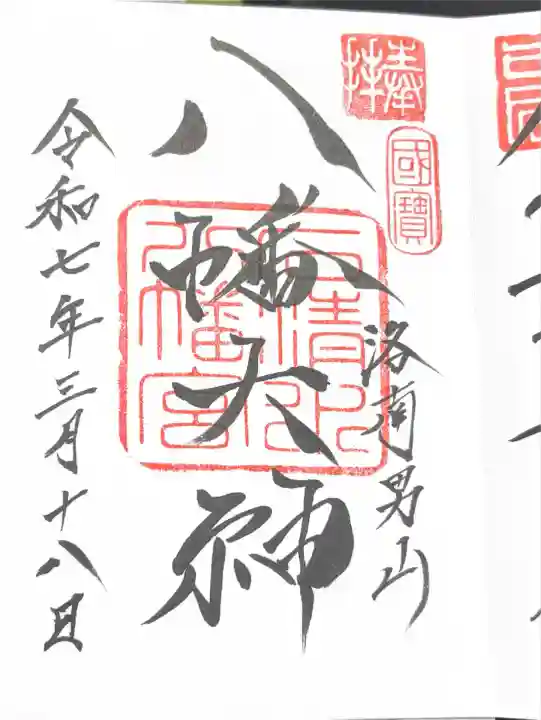 奉拝
國寶
洛南男山
八幡大神
石清水八幡宮
令和七年三月十八日